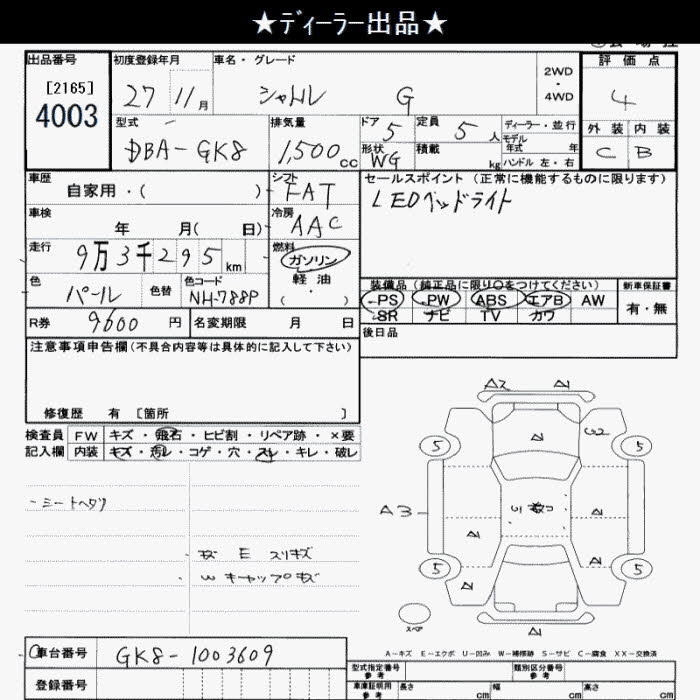 ★ディーラー出品★
出品番号
[2165]
4003
初度登録年月
27 11月
車名・グレード
シャトル G
2WD
・
4WD
評価点
4
外装 内装
C B
型式
DBA-GK8
排気量
1,500cc
ドア 5
形状 WG
定員 5人
積載 kg
ディーラー・並行
モデル年式 年
ハンドル 左・右
車歴
自家用・( )
シフト
FAT
セールスポイント (正常に機能するものに限ります)
LEDヘッドライト
車検
年 月( 日)
冷房
AAC
走行
9万3千295km
燃料
ガソリン
軽油
・( )
色
パール
色替
色コード
NH-788P
装備品(純正品に限り○をつけてください)
PS PW ABS エアB AW
SR ナビ TV カワ
新車保証書
有・無
R券 9600円
名変期限 月 日
後日品
注意事項申告欄(不具合内容等は具体的に記入して下さい)
修復歴 有 [箇所 ]
検査員 FW キズ・飛石・ヒビ割・リペア跡・×要
記入欄 内装 キズ・汚レ・コゲ・穴・スレ・キレ・破レ
シートヘタリ
キズ E スリキズ
W キャップキズ
A2 A1
5 5
A3
5 5
スペア
A-キズ E-エクボ U-凹み W-補修跡 S-サビ C-腐食 XX-交換済
車台番号 GK8-1003609
登録番号
型式指定番号
参考
類別区分番号
参考
車庫証明用
参考
長さ cm 幅 cm 高さ cm